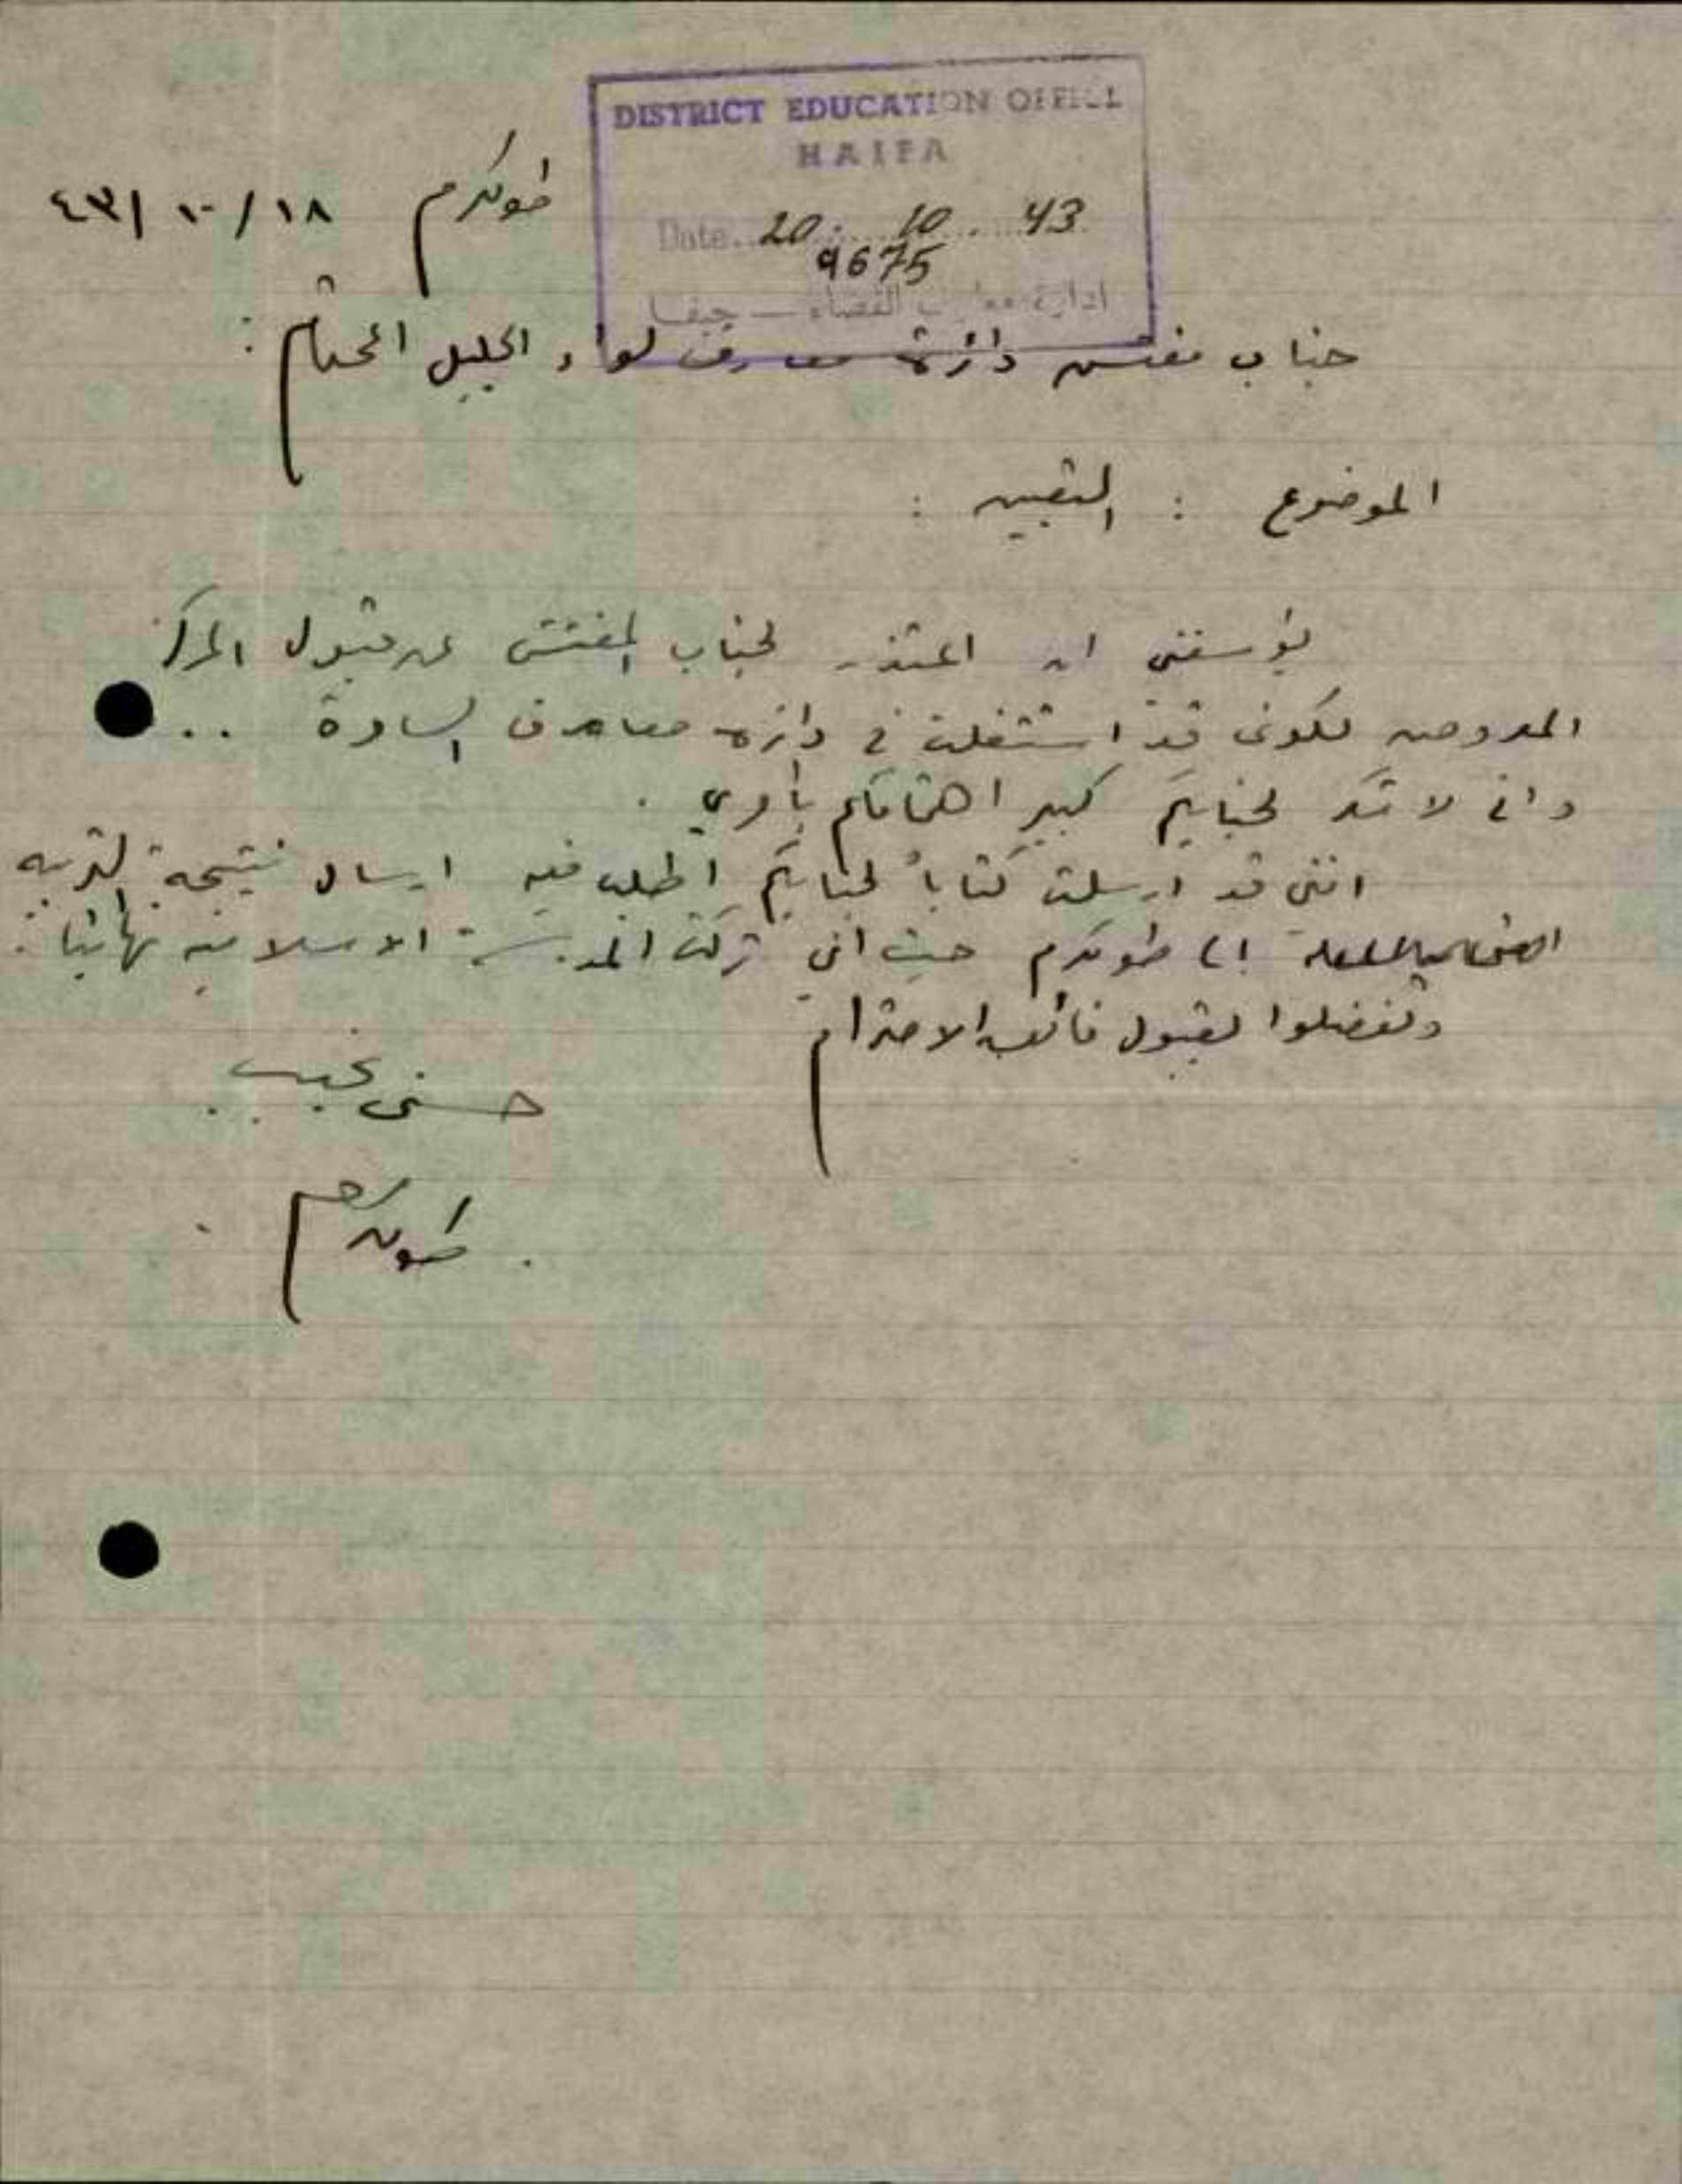 DISTRICT EDUCATION OFFICE
HAIFA
Date.. 20. 10 43
9675
ادارة معارف القضاء — حيفا
طولكرم ١٨/١٠/٤٣
جناب مفتش دائرة معارف لواء الجليل المحترم :
الموضوع : التعيين :
يؤسفني ان اعتذر لجناب المفتش عن قبول المركز
المعروض لكوني قد اشتغلت في دائرة معارف السامرة ..
واني لاشكر لجنابكم كبير اهتمامكم بأمري .
انني قد ارسلت كتاباً لجنابكم اطلب فيه ارسال نتيجة
الى طولكرم حيث اني تركت المدرسة الاسلامية نهائيا :
وتفضلوا بقبول فائق الاحترام
حسني نجيب
طولكرم